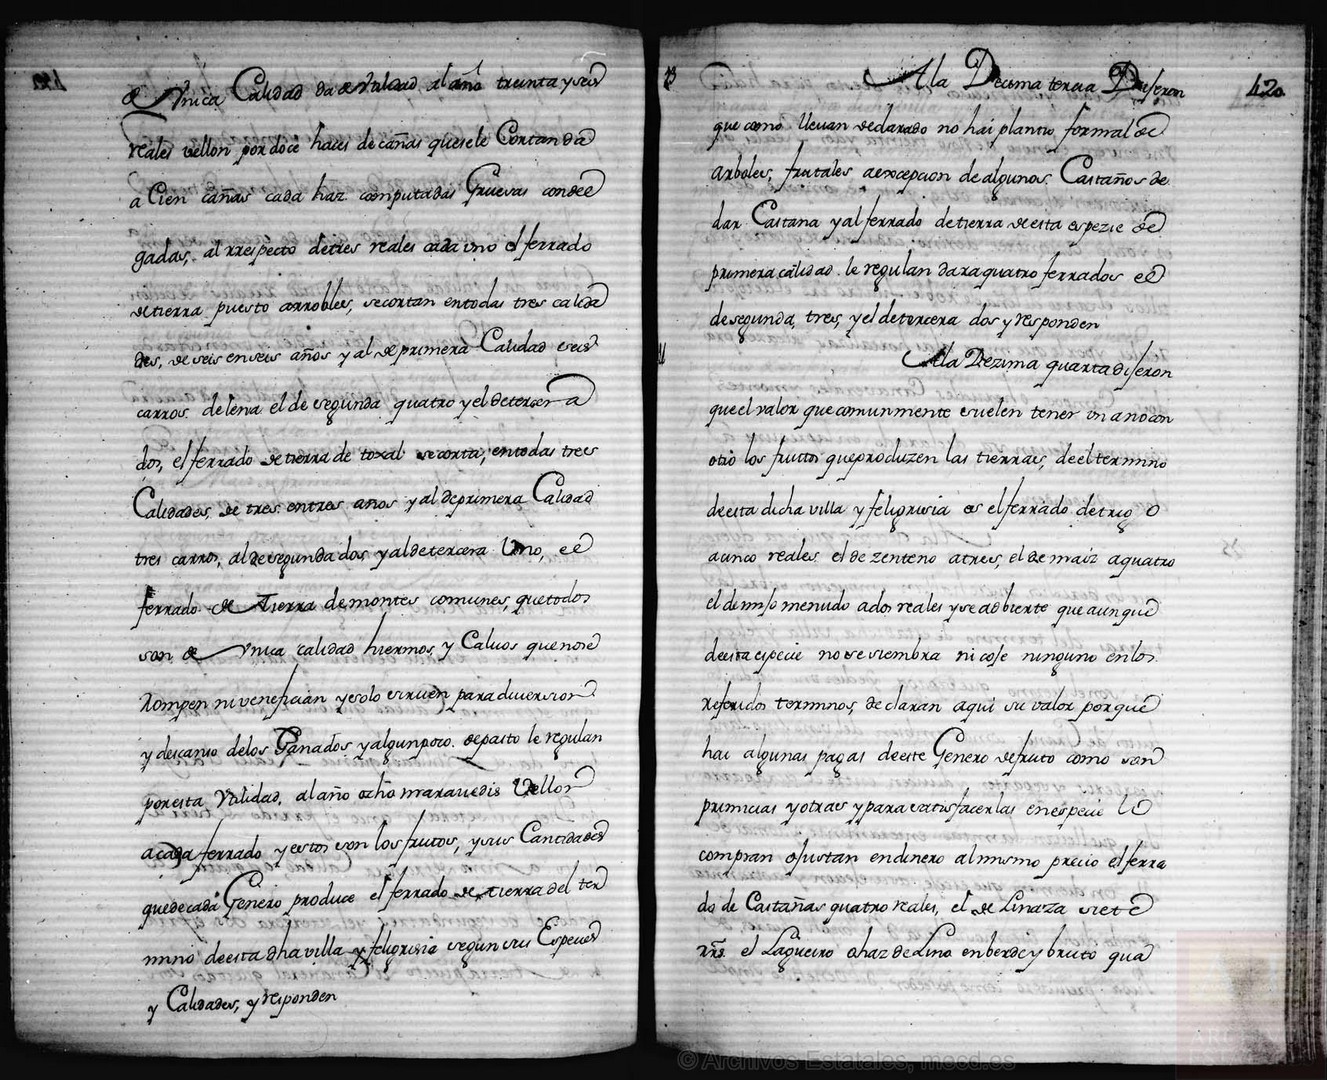 de Vnica Calidad da de vtilidad, al año treinta y seis
reales vellon por doce haces de cañas que se le Cortan da
a Cien cañas cada haz computadas Gruesas con del
gadas, al rrespecto de tres reales cada vno el ferrado
de tierra puesto a rrobles, se cortan en todas tres calida
des, de seis en seis años y al de primera Calidad seis
carros de leña el de segunda quatro y el de tersera
dos, el ferrado de tierra de toxal se corta, en todas tres
Calidades, de tres en tres años y al de primera Calidad
tres carros, al de segunda dos y al de tercera Uno, el
ferrado de tierra de montes comunes, que todos
son de Vnica calidad hiermos, y Calvos que no se
Rompen ni venefician y solo sirven para diversion
y descanso de los Ganados y algun poco de pasto le regulan
por esta Vtilidad, al año ocho maravedis Vellon
a cada ferrado y estos son los frutos, y sus Cantidades
que de cada Genero produce el ferrado de tierra del ter
mino de esta dha villa y feligrisia segun sus Especies
y Calidades, y responden
13 A la Decima tercia Diseron 420
que como llevan declarado no hai plantio formal de
arboles, frutales a excepcion de algunos Castaños de
dar Castana y al ferrado de tierra de esta espezie de
primera calidad le regulan dara quatro ferrados el
de segunda, tres, y el de tercera dos y responden
A la Dezima quarta diseron
que el valor que comunmente suelen tener un ano con
otro los frutos que produzen las tierras, de el termino
de esta dicha villa y feligrisia es el ferrado de trigo
a cinco reales el de zenteno a tres, el de maiz a quatro
el de mijo menudo a dos reales y se adbierte que aunque
de esta especie no se siembra ni coje ninguno en los
referidos terminos, declaran aqui su valor porque
hai algunas pagas de este Genero de fruto como son
primicias y otras y para satisfacerlas en especie lo
compran o justan en dinero al mismo precio el ferra
do de Castañas quatro reales, el de Linaza siete
rrs. el Lagueiro o haz de Lino en berde y bruto qua
© Archivos Estatales, mecd.es